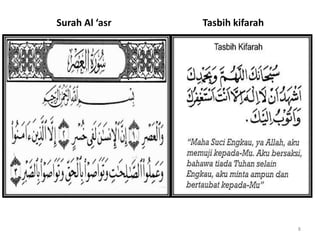 Surah Al ‘asr
سُورَةُ العَصْرِ
بِسْمِ اللَّهِ الرَّحْمَٰنِ الرَّحِيمِ
وَالْعَصْرِ ١ إِنَّ الْإِنسَانَ لَفِي خُسْرٍ ٢ إِلَّا الَّذِينَ ءَامَنُوا
وَعَمِلُوا الصَّالِحَاتِ وَتَوَاصَوْا بِالْحَقِّ وَتَوَاصَوْا بِالصَّبْرِ ٣
Tasbih kifarah
Tasbih Kifarah
سُبْحَانَكَ اللَّهُمَّ وَبِحَمْدِكَ
أَشْهَدُ أَنْ لَا إِلَهَ إِلَّا أَنْتَ أَسْتَغْفِرُكَ
وَأَتُوبُ إِلَيْكَ
“Maha Suci Engkau, ya Allah, aku
memuji kepada-Mu. Aku bersaksi,
bahawa tiada Tuhan selain
Engkau, aku minta ampun dan
bertaubat kepada-Mu”